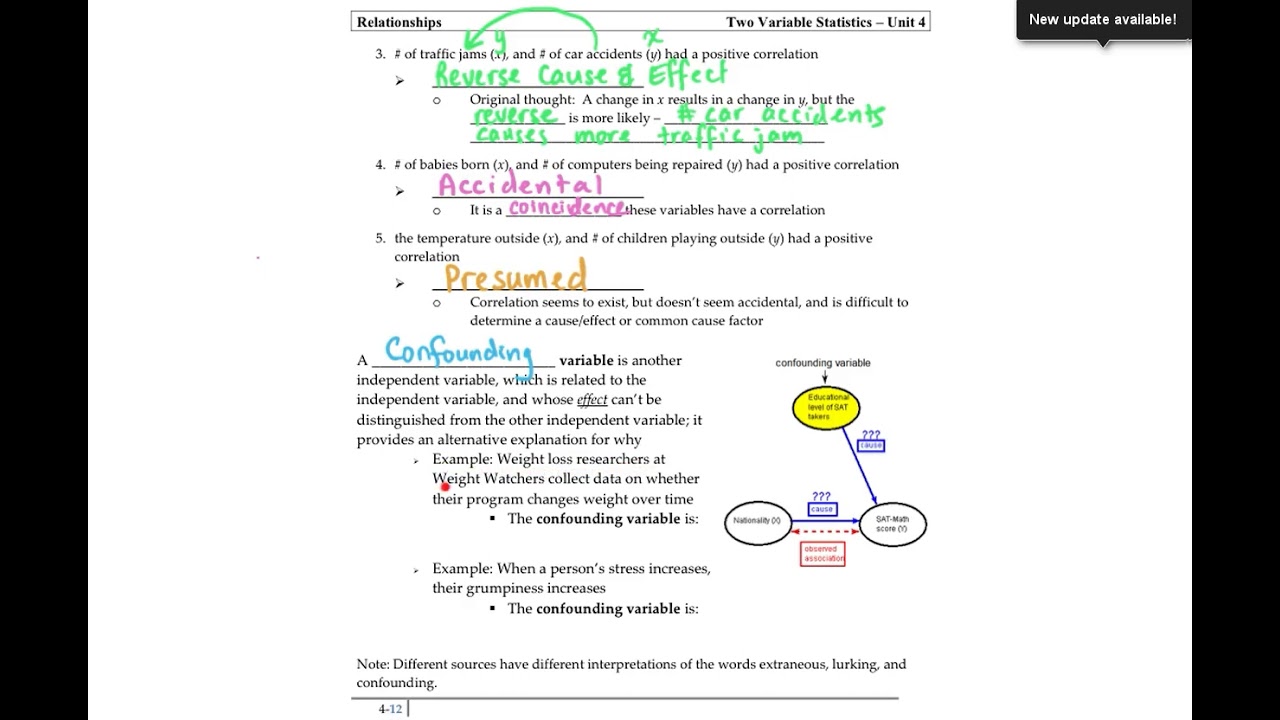 New update available!
Relationships Two Variable Statistics – Unit 4
y x
3. # of traffic jams (x), and # of car accidents (y) had a positive correlation
➢ Reverse Cause & Effect
o Original thought: A change in x results in a change in y, but the
reverse is more likely – # car accidents
causes more traffic jam
4. # of babies born (x), and # of computers being repaired (y) had a positive correlation
➢ Accidental
o It is a coincidence these variables have a correlation
5. the temperature outside (x), and # of children playing outside (y) had a positive
correlation
➢ Presumed
o Correlation seems to exist, but doesn't seem accidental, and is difficult to
determine a cause/effect or common cause factor
A Confounding variable is another
independent variable, which is related to the
independent variable, and whose effect can't be
distinguished from the other independent variable; it
provides an alternative explanation for why
➢ Example: Weight loss researchers at
Weight Watchers collect data on whether
their program changes weight over time
▪ The confounding variable is:
➢ Example: When a person's stress increases,
their grumpiness increases
▪ The confounding variable is:
confounding variable
Educational
level of SAT
takers
???
cause
???
cause
Nationality (X)
SAT-Math
score (Y)
observed
association
Note: Different sources have different interpretations of the words extraneous, lurking, and
confounding.
4-12